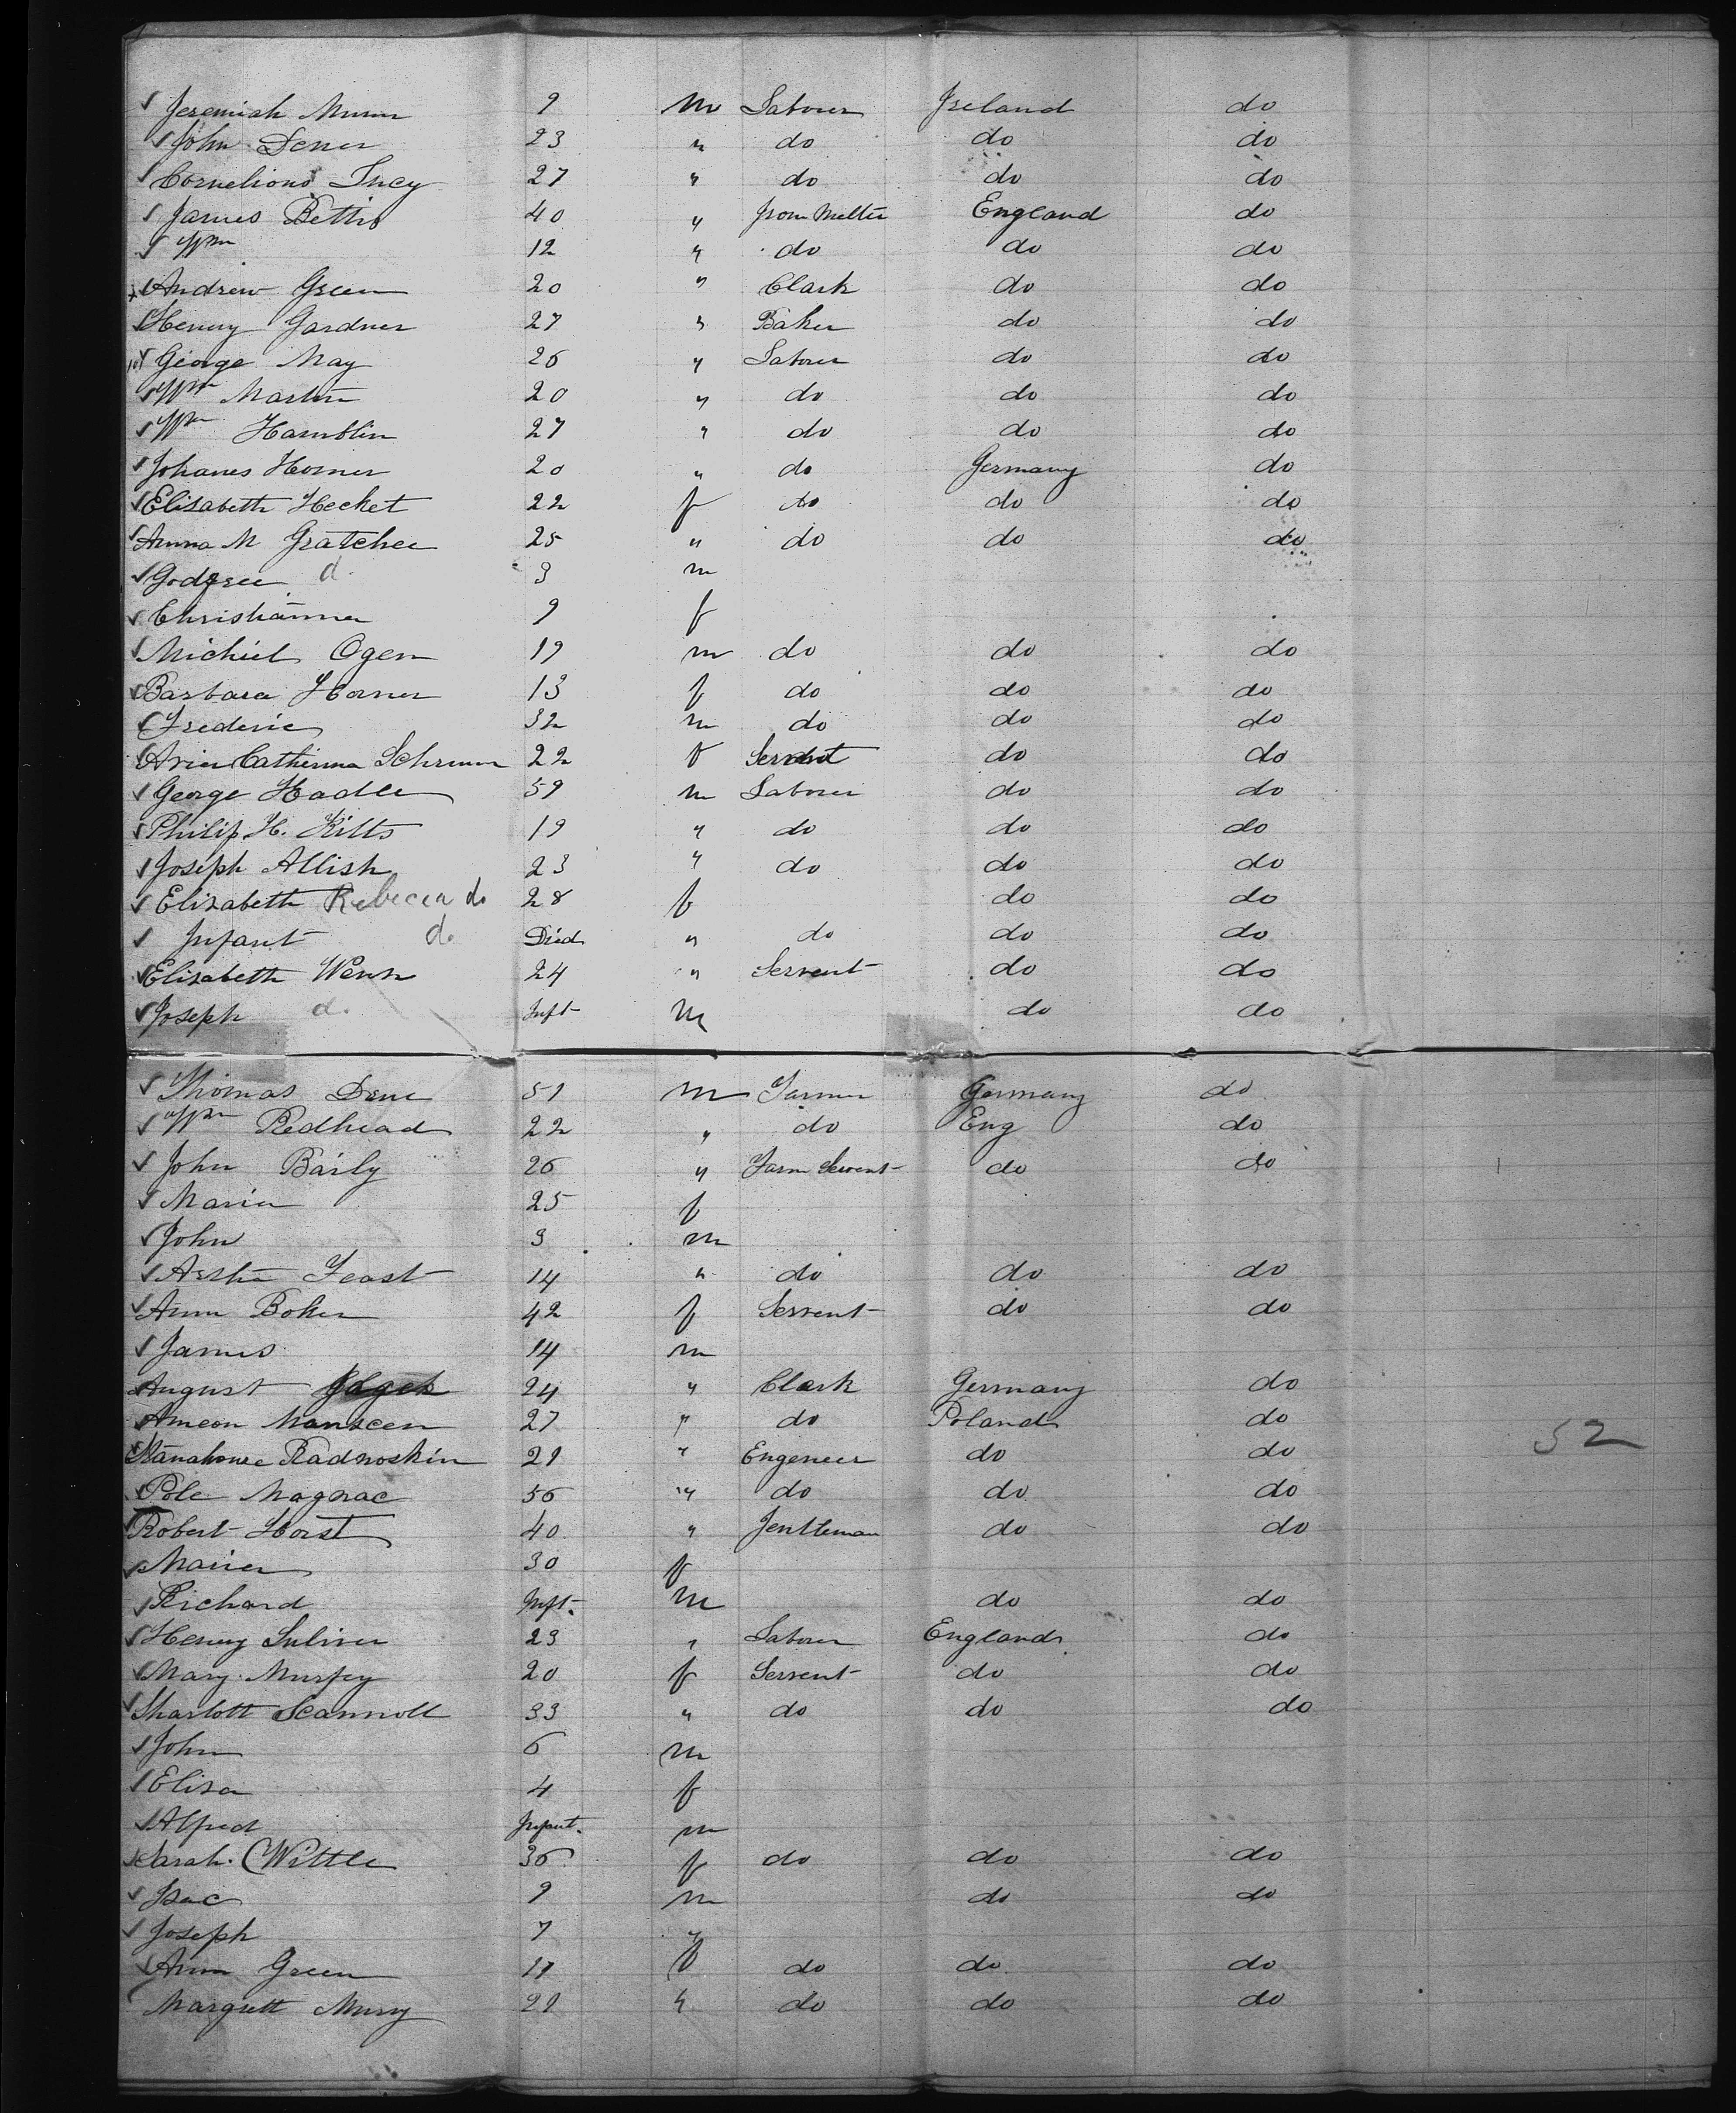 Jeremiah Munn 9 m Laborer Ireland do
John Dener 23 " do do do
Cornelious Lucy 27 " do do do
James Bettis 40 " Iron Melter England do
Wm 12 " do do do
Andrew Green 20 " Clark do do
Henry Gardner 27 " Baker do do
George May 26 " Laborer do do
Wm Martin 20 " do do do
Wm Hamblin 27 " do do do
Johanes Horner 20 " do Germany do
Elisabeth Hecket 22 f do do do
Anna M Gratchee 25 " do do do
Godfree d. 3 m
Christianna 9 f
Michiel Ogen 19 m do do do
Barbara Horner 13 f do do do
Frederic 32 m do do do
Catherina 22 f Servent do do
George Hadle 59 m Laborer do do
Philip H. Kitts 19 " do do do
Joseph Allish 23 " do do do
Elisabeth Rebecca do 28 f do do
Infant do Died " do do do
Elisabeth Wenn 24 " Servent do do
Joseph d. Inft m do do
Thomas Dene 51 m Farmer Germany do
Wm Redhead 22 " do Eng do
John Baily 26 " Farm Servent do do
Maria 25 f
John 3 m
Feast 14 " do do do
Ann Boker 42 f Servent do do
James 14 m
August 24 " Clark Germany do
Ameon Manscen 27 " do Poland do
Radnoskin 29 " Engeneer do do
52
Pole Magnac 56 " do do do
Robert Horst 40 " Jentleman do do
Maria 30 f
Richard Inft. m do do
Henry Suliver 23 " Laborer England do
Mary Murfey 20 f Servent do do
Sharlott Scannoll 33 " do do do
John 6 m
Elisa 4 f
Alfred Infant. m
Sarah Wittle 36 f do do do
Isac 9 m do do
Joseph 7 "
Ann Green 19 f do do do
Margrett Mury 29 " do do do